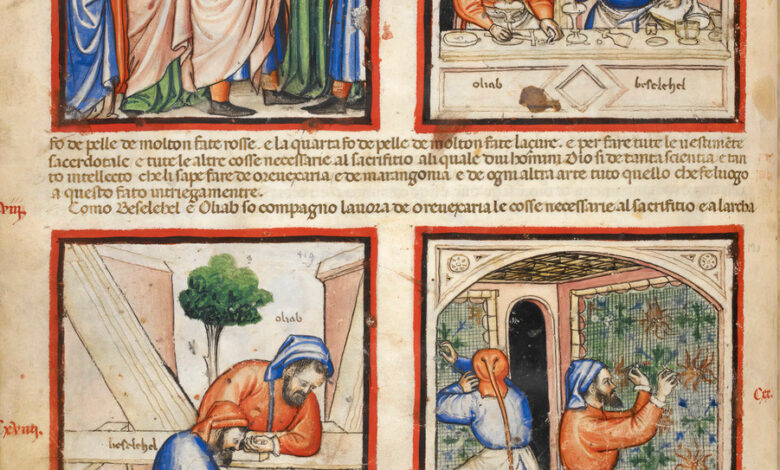 oliab beselehel
fo de pelle de molton fate rosse. e la quarta fo de pelle de molton fate laçure. e per fare tute le uestimēte
sacerdotile e tute le altre cosse necessarie al sacrifitio ali quale dui homini Dio si de tanta scientia e tan
to intellecto che li sape fare de oreueçaria e de marangonia e de ogni altra arte tuto quello che fe luogo
a questo fato intriegamentre.
Como Beselehel e Oliab so compagno lauora de oreueçaria le cosse necessarie al sacrifitio e a larcha
oliab
beselehel